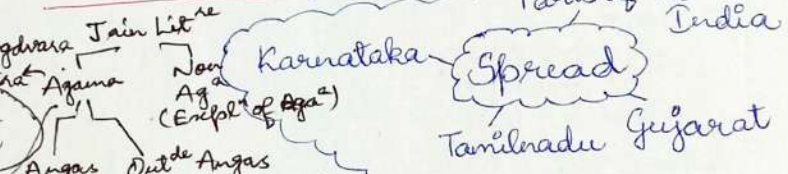 Jain Lit^re
Agama
Non Aga
(Expl^n of Aga^a)
Angas
Out^de Angas
India
Karnataka
Spread
Tamilnadu
Gujarat